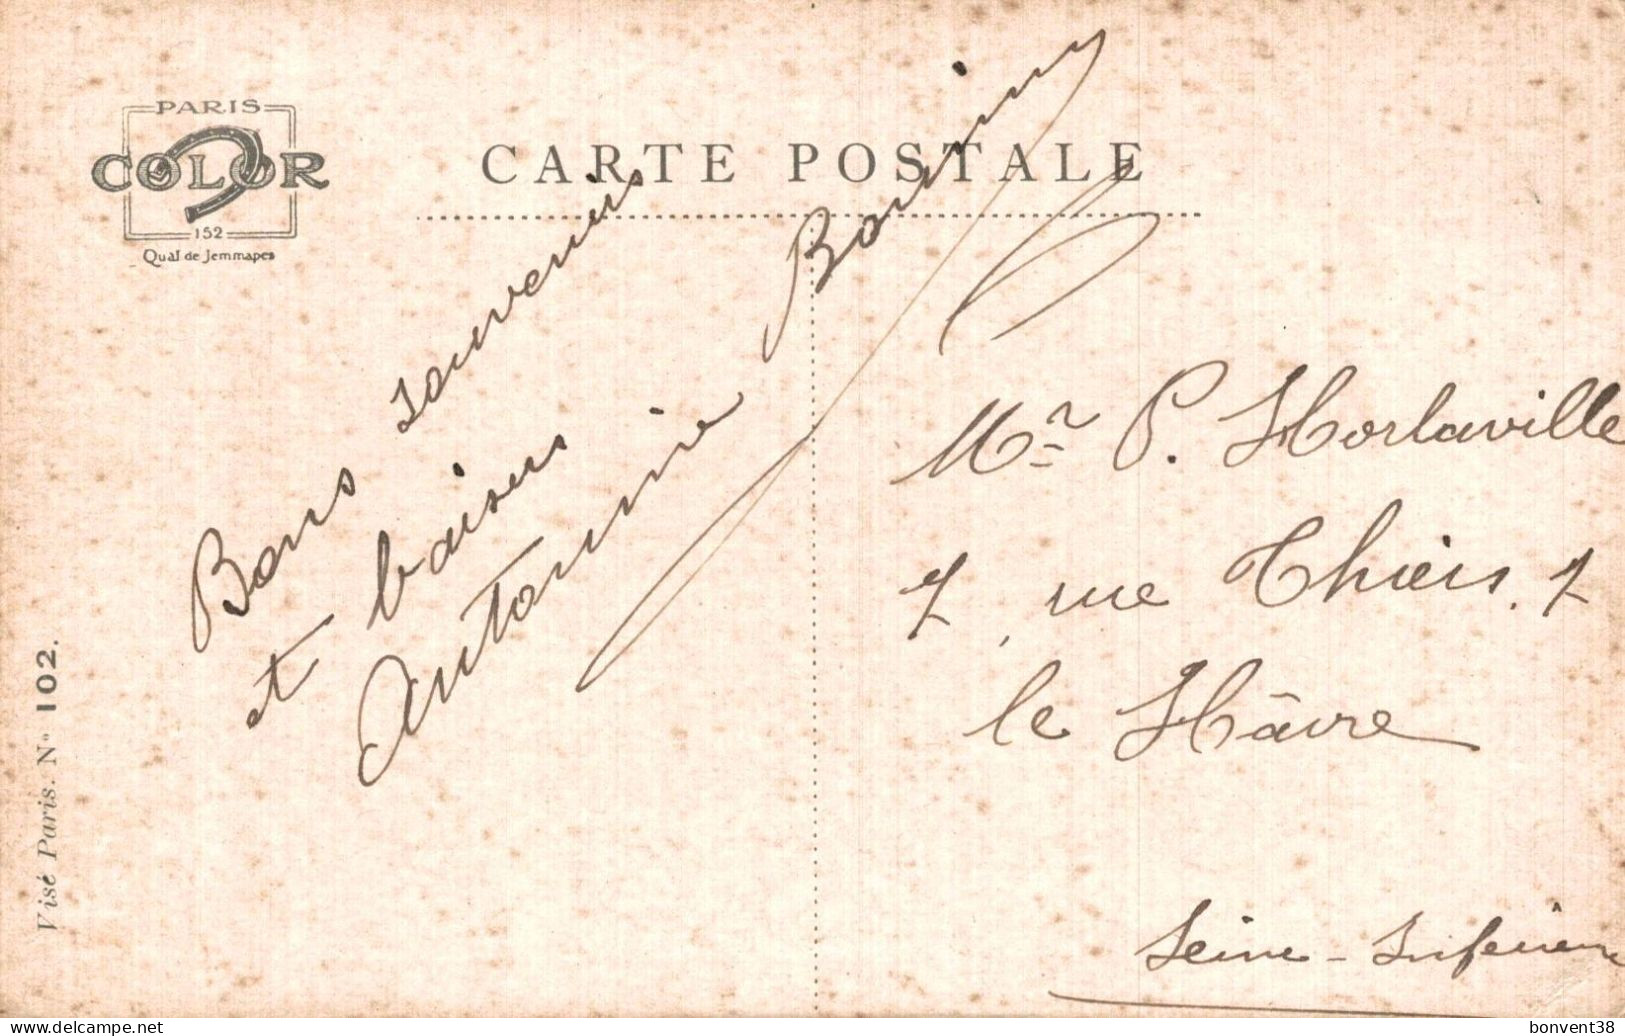 PARIS
COLOR
152
Quai de Jemmapes
CARTE POSTALE
Bons souvenirs
et baisers
Antonine
Mr P. Horlaville
7, rue Thiers. 7
le Hâvre
Seine-Inférieure
Visé Paris. No 102.
bonvent38